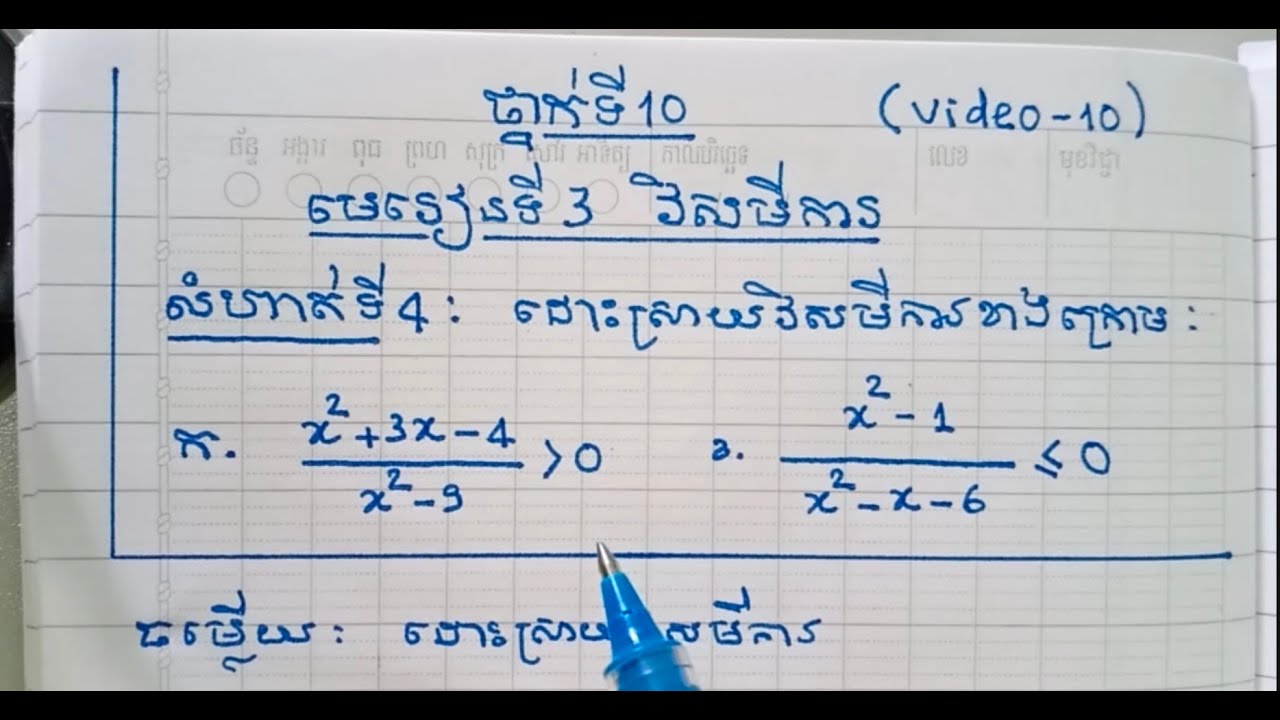 ថ្នាក់ទី10 (video-10)
ច័ន្ទ អង្គារ ពុធ ព្រហ សុក្រ សៅរ៍ អាទិត្យ កាលបរិច្ឆេទ លេខ មុខវិជ្ជា
មេរៀនទី3 វិសមីការ
លំហាត់ទី4: ដោះស្រាយវិសមីការខាងក្រោម:
ក. (x²+3x-4)/(x²-9) > 0 ខ. (x²-1)/(x²-x-6) ≤ 0
ចម្លើយ: ដោះស្រាយ សមីការ